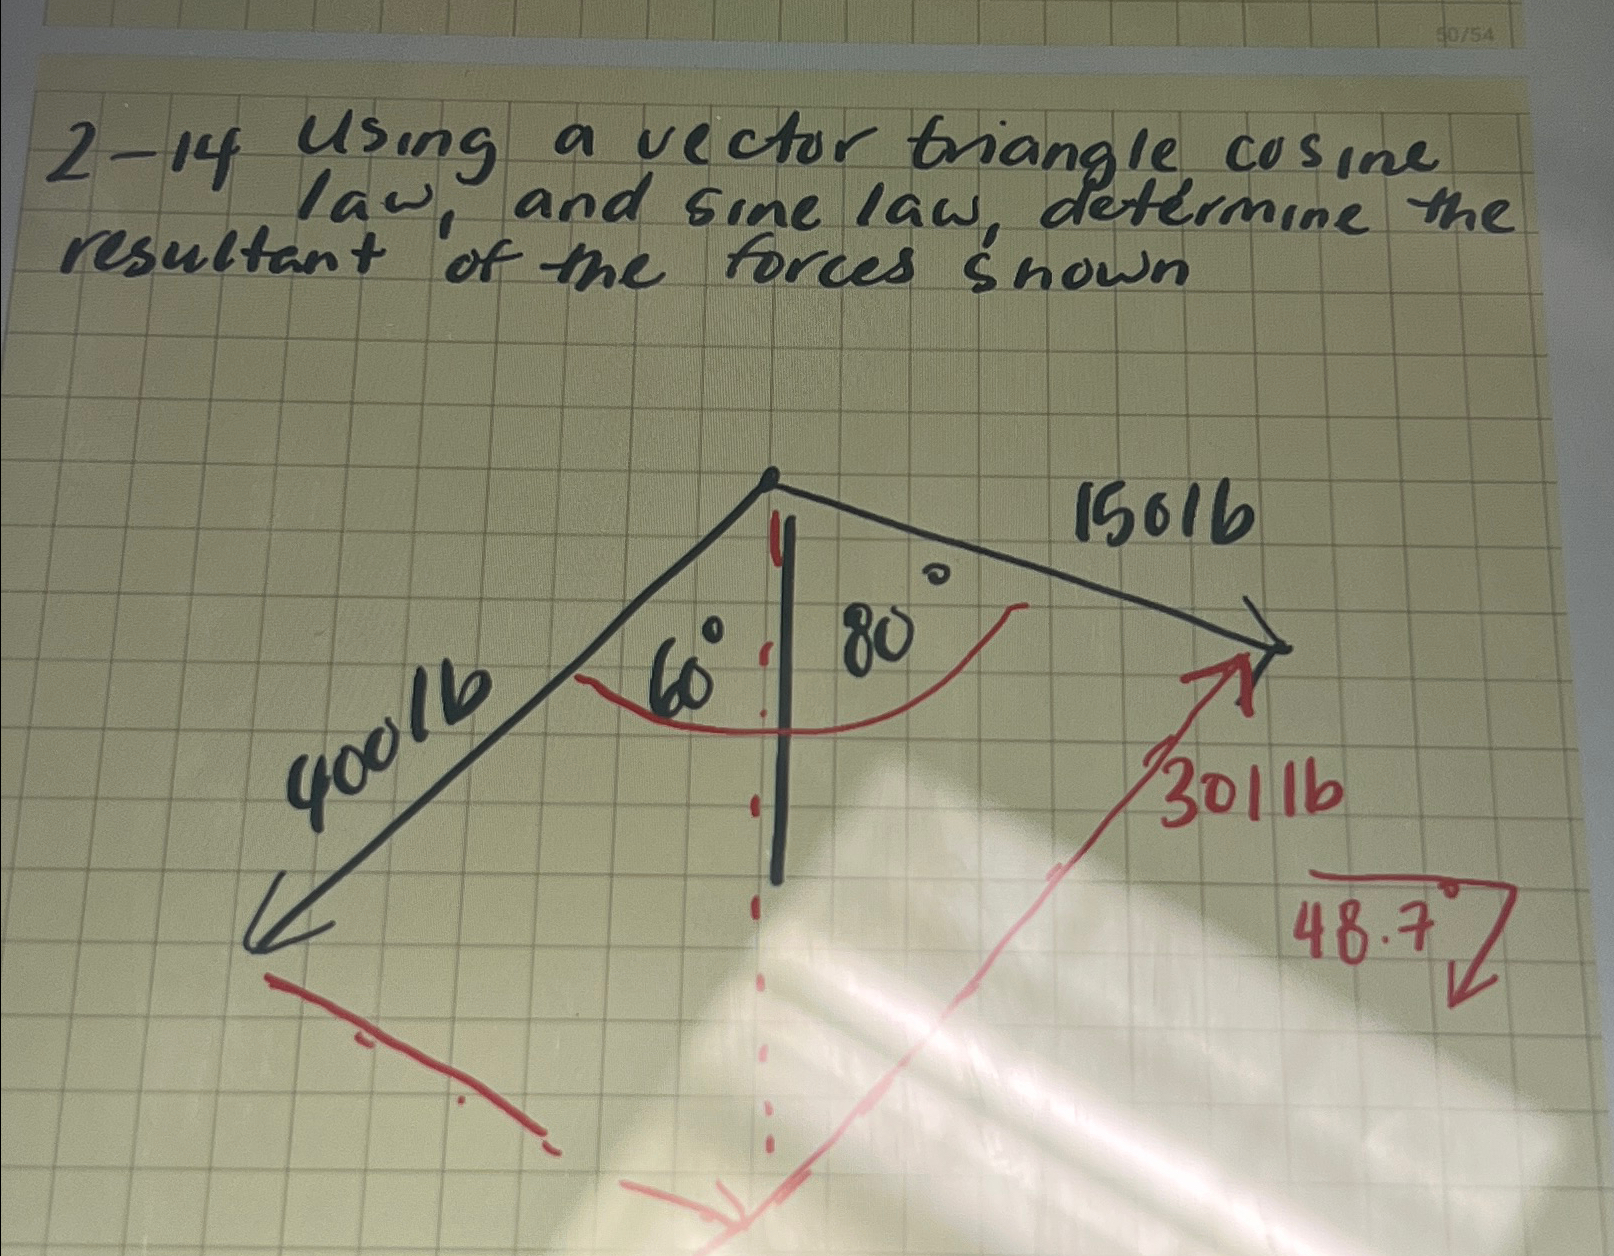 50/54
2-14 Using a vector triangle cosine
law, and sine law, determine the
resultant of the forces shown
150lb
80°
60°
400lb
301lb
48.7°